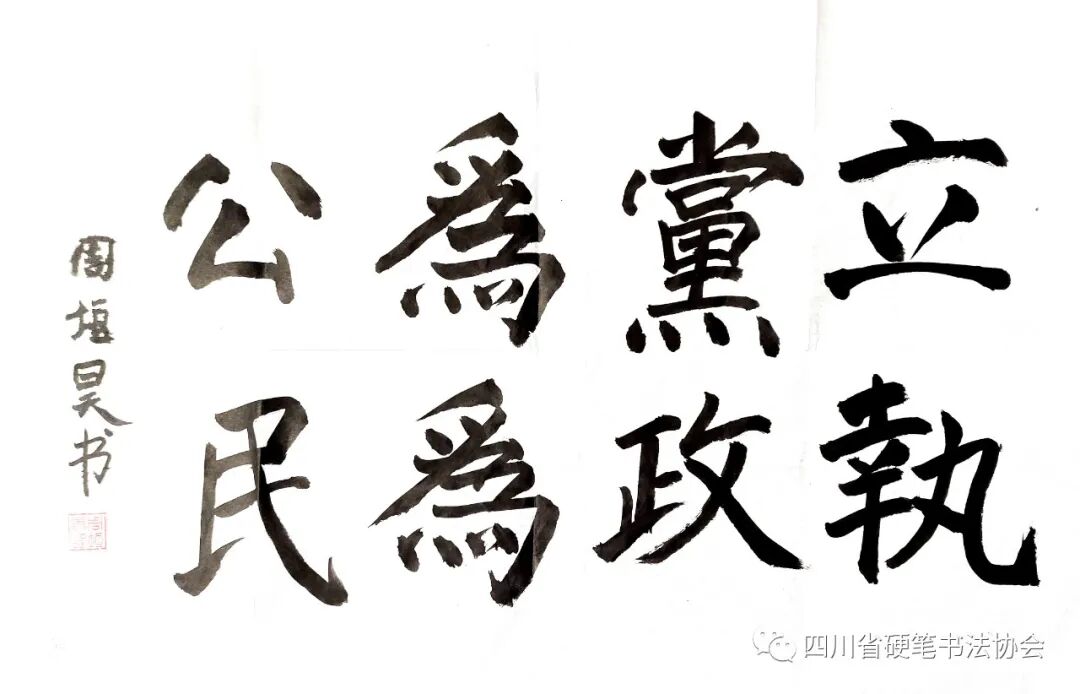 立黨爲公
執政爲民
周堰昊书
四川省硬笔书法协会